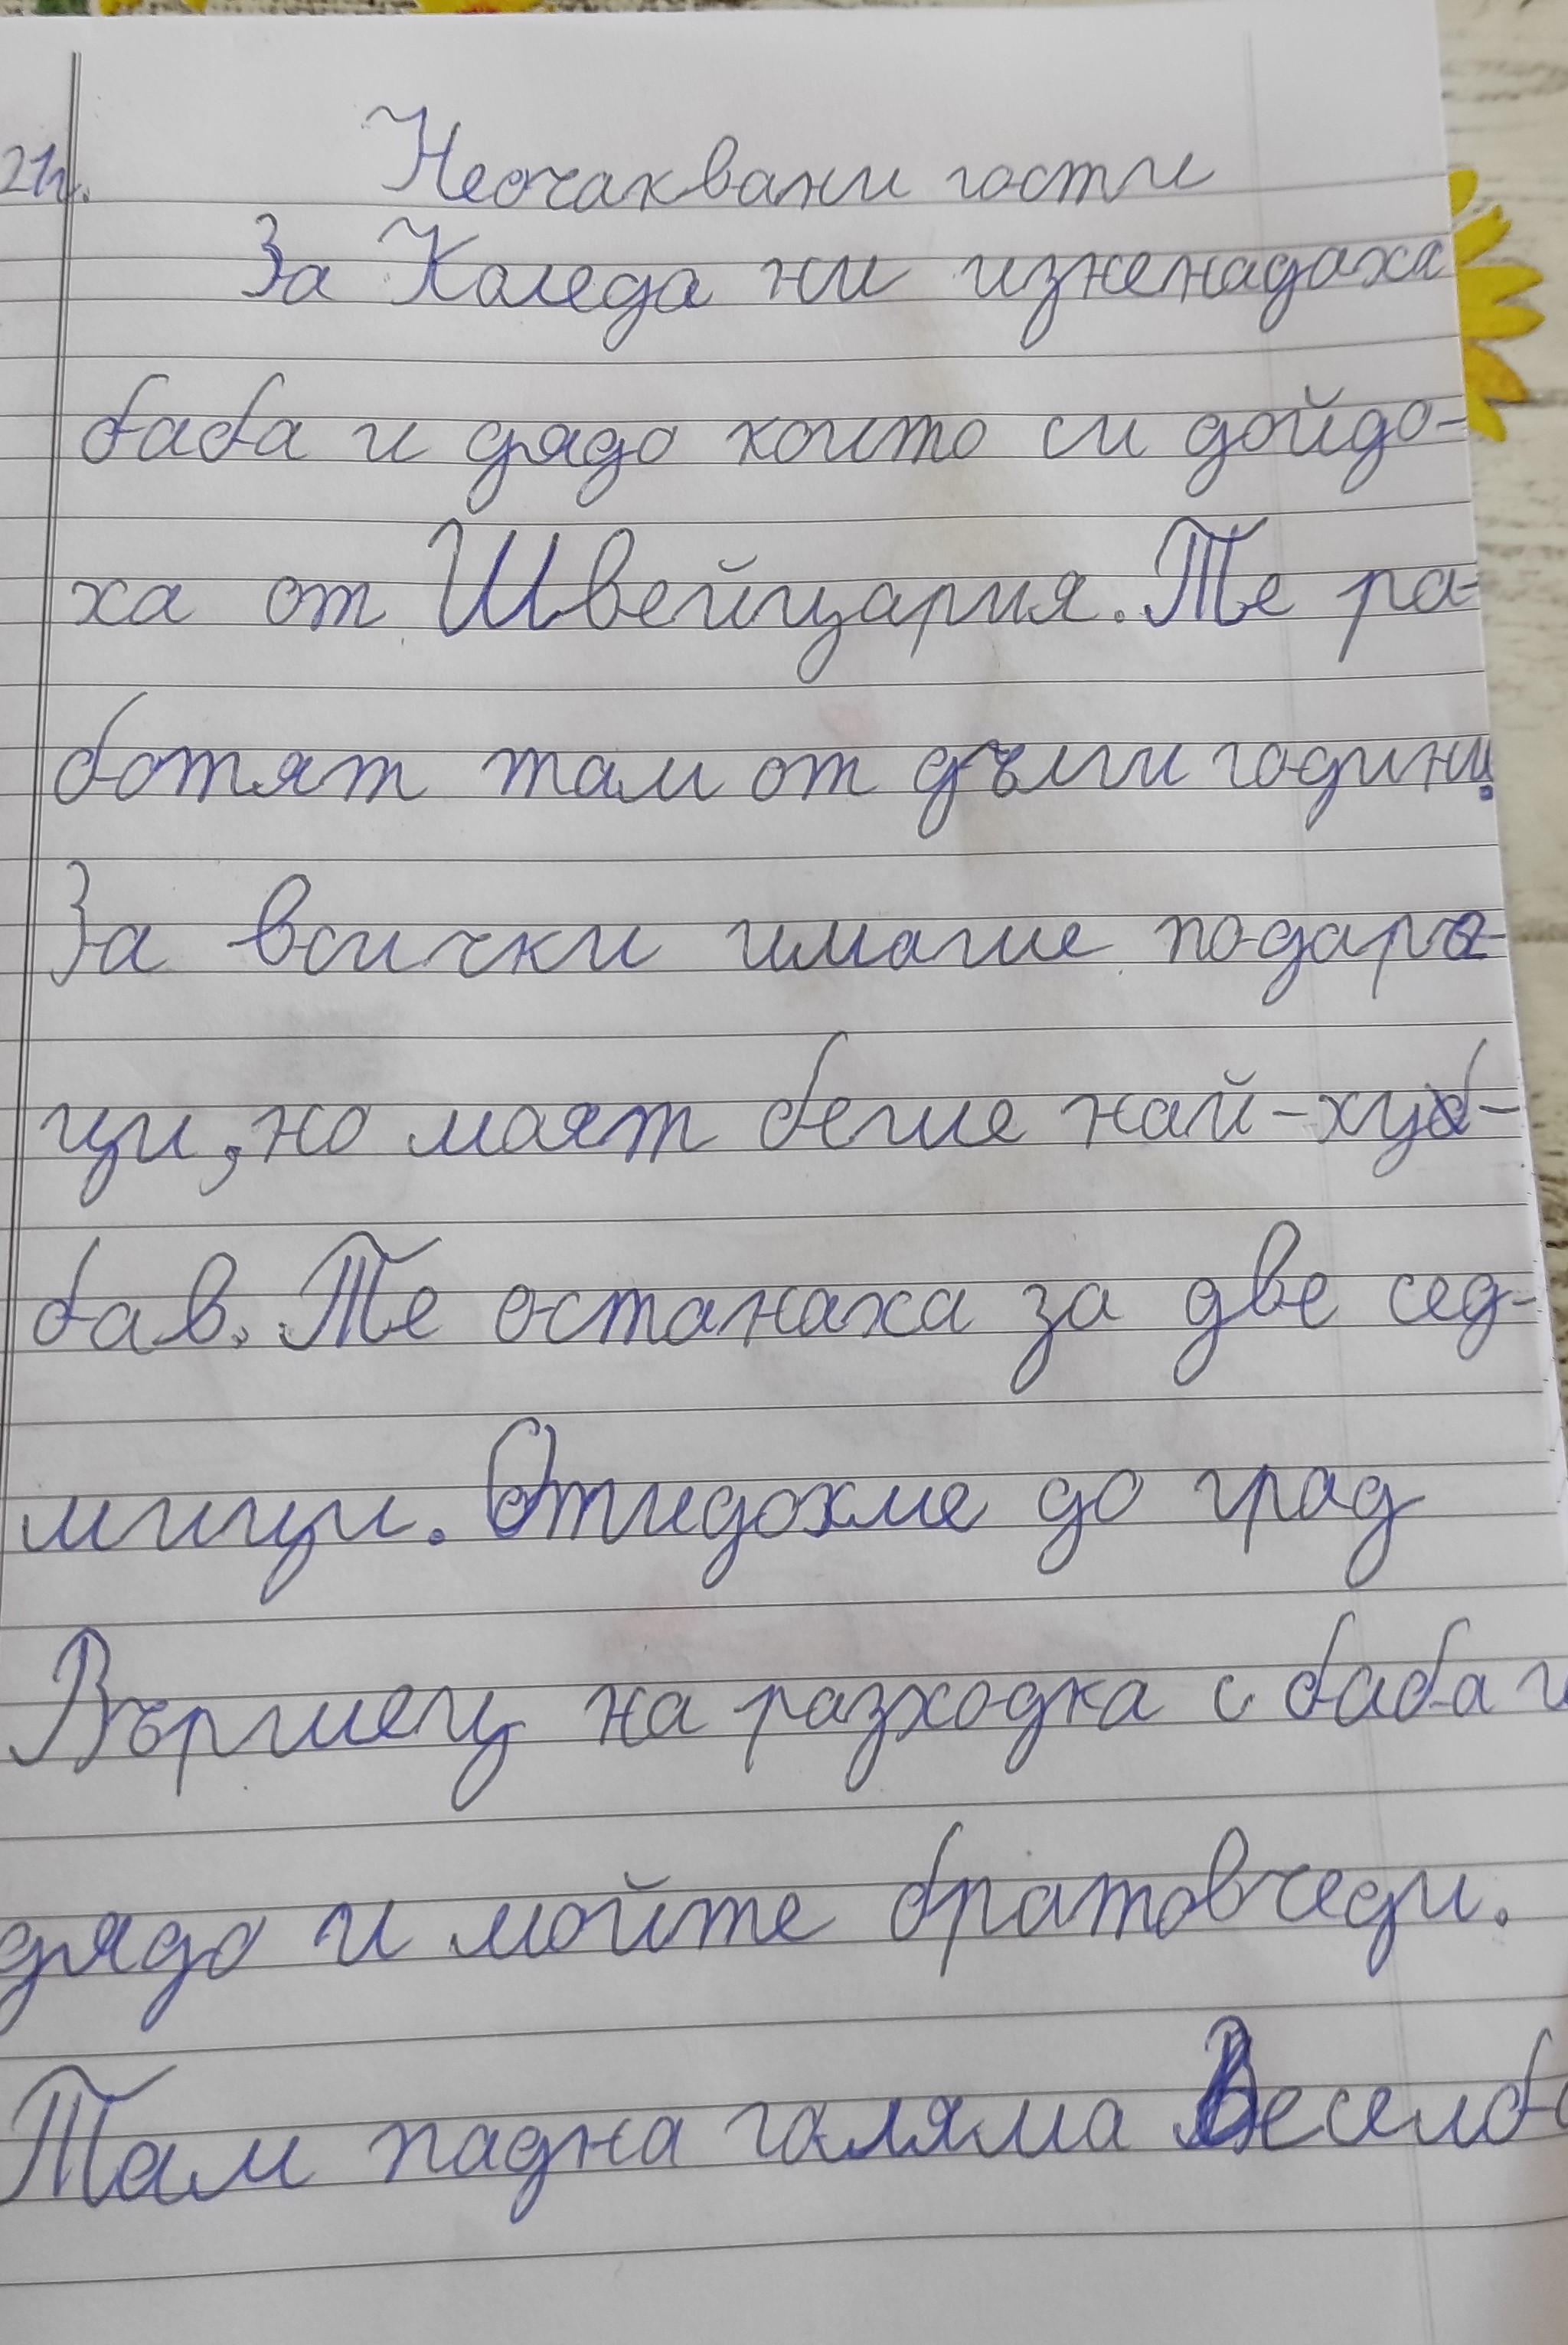 21г.
Неочаквани гости
За Коледа ни изненадаха
баба и дядо които си дойдо-
ха от Швейцария. Те ра-
ботят там от дълги години.
За всички имаше подаръ-
ци, но моят беше най-хуб-
бав. Те останаха за две сед-
мици. Отидохме до град
Вършец на разходка с баба и
дядо и мойте братовчеди.
Там падна галяма